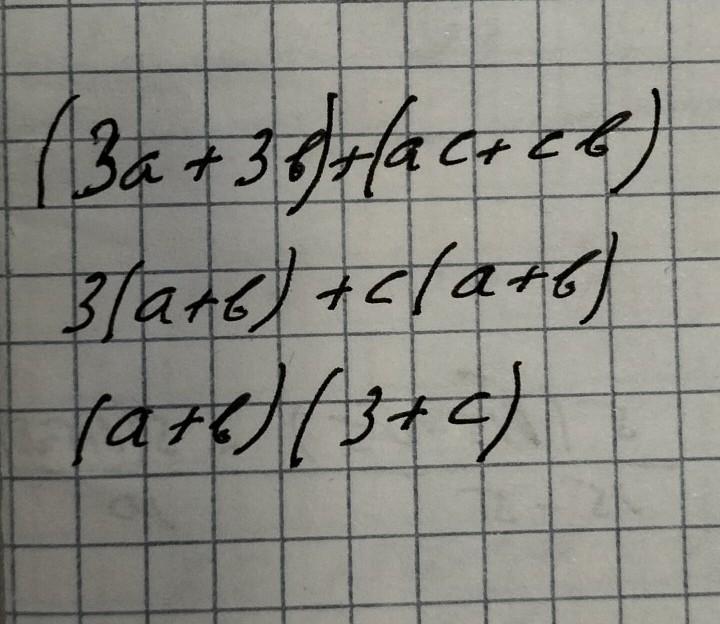 (3a + 3b) + (ac + cb)
3(a+b) + c(a+b)
(a+b)(3+c)